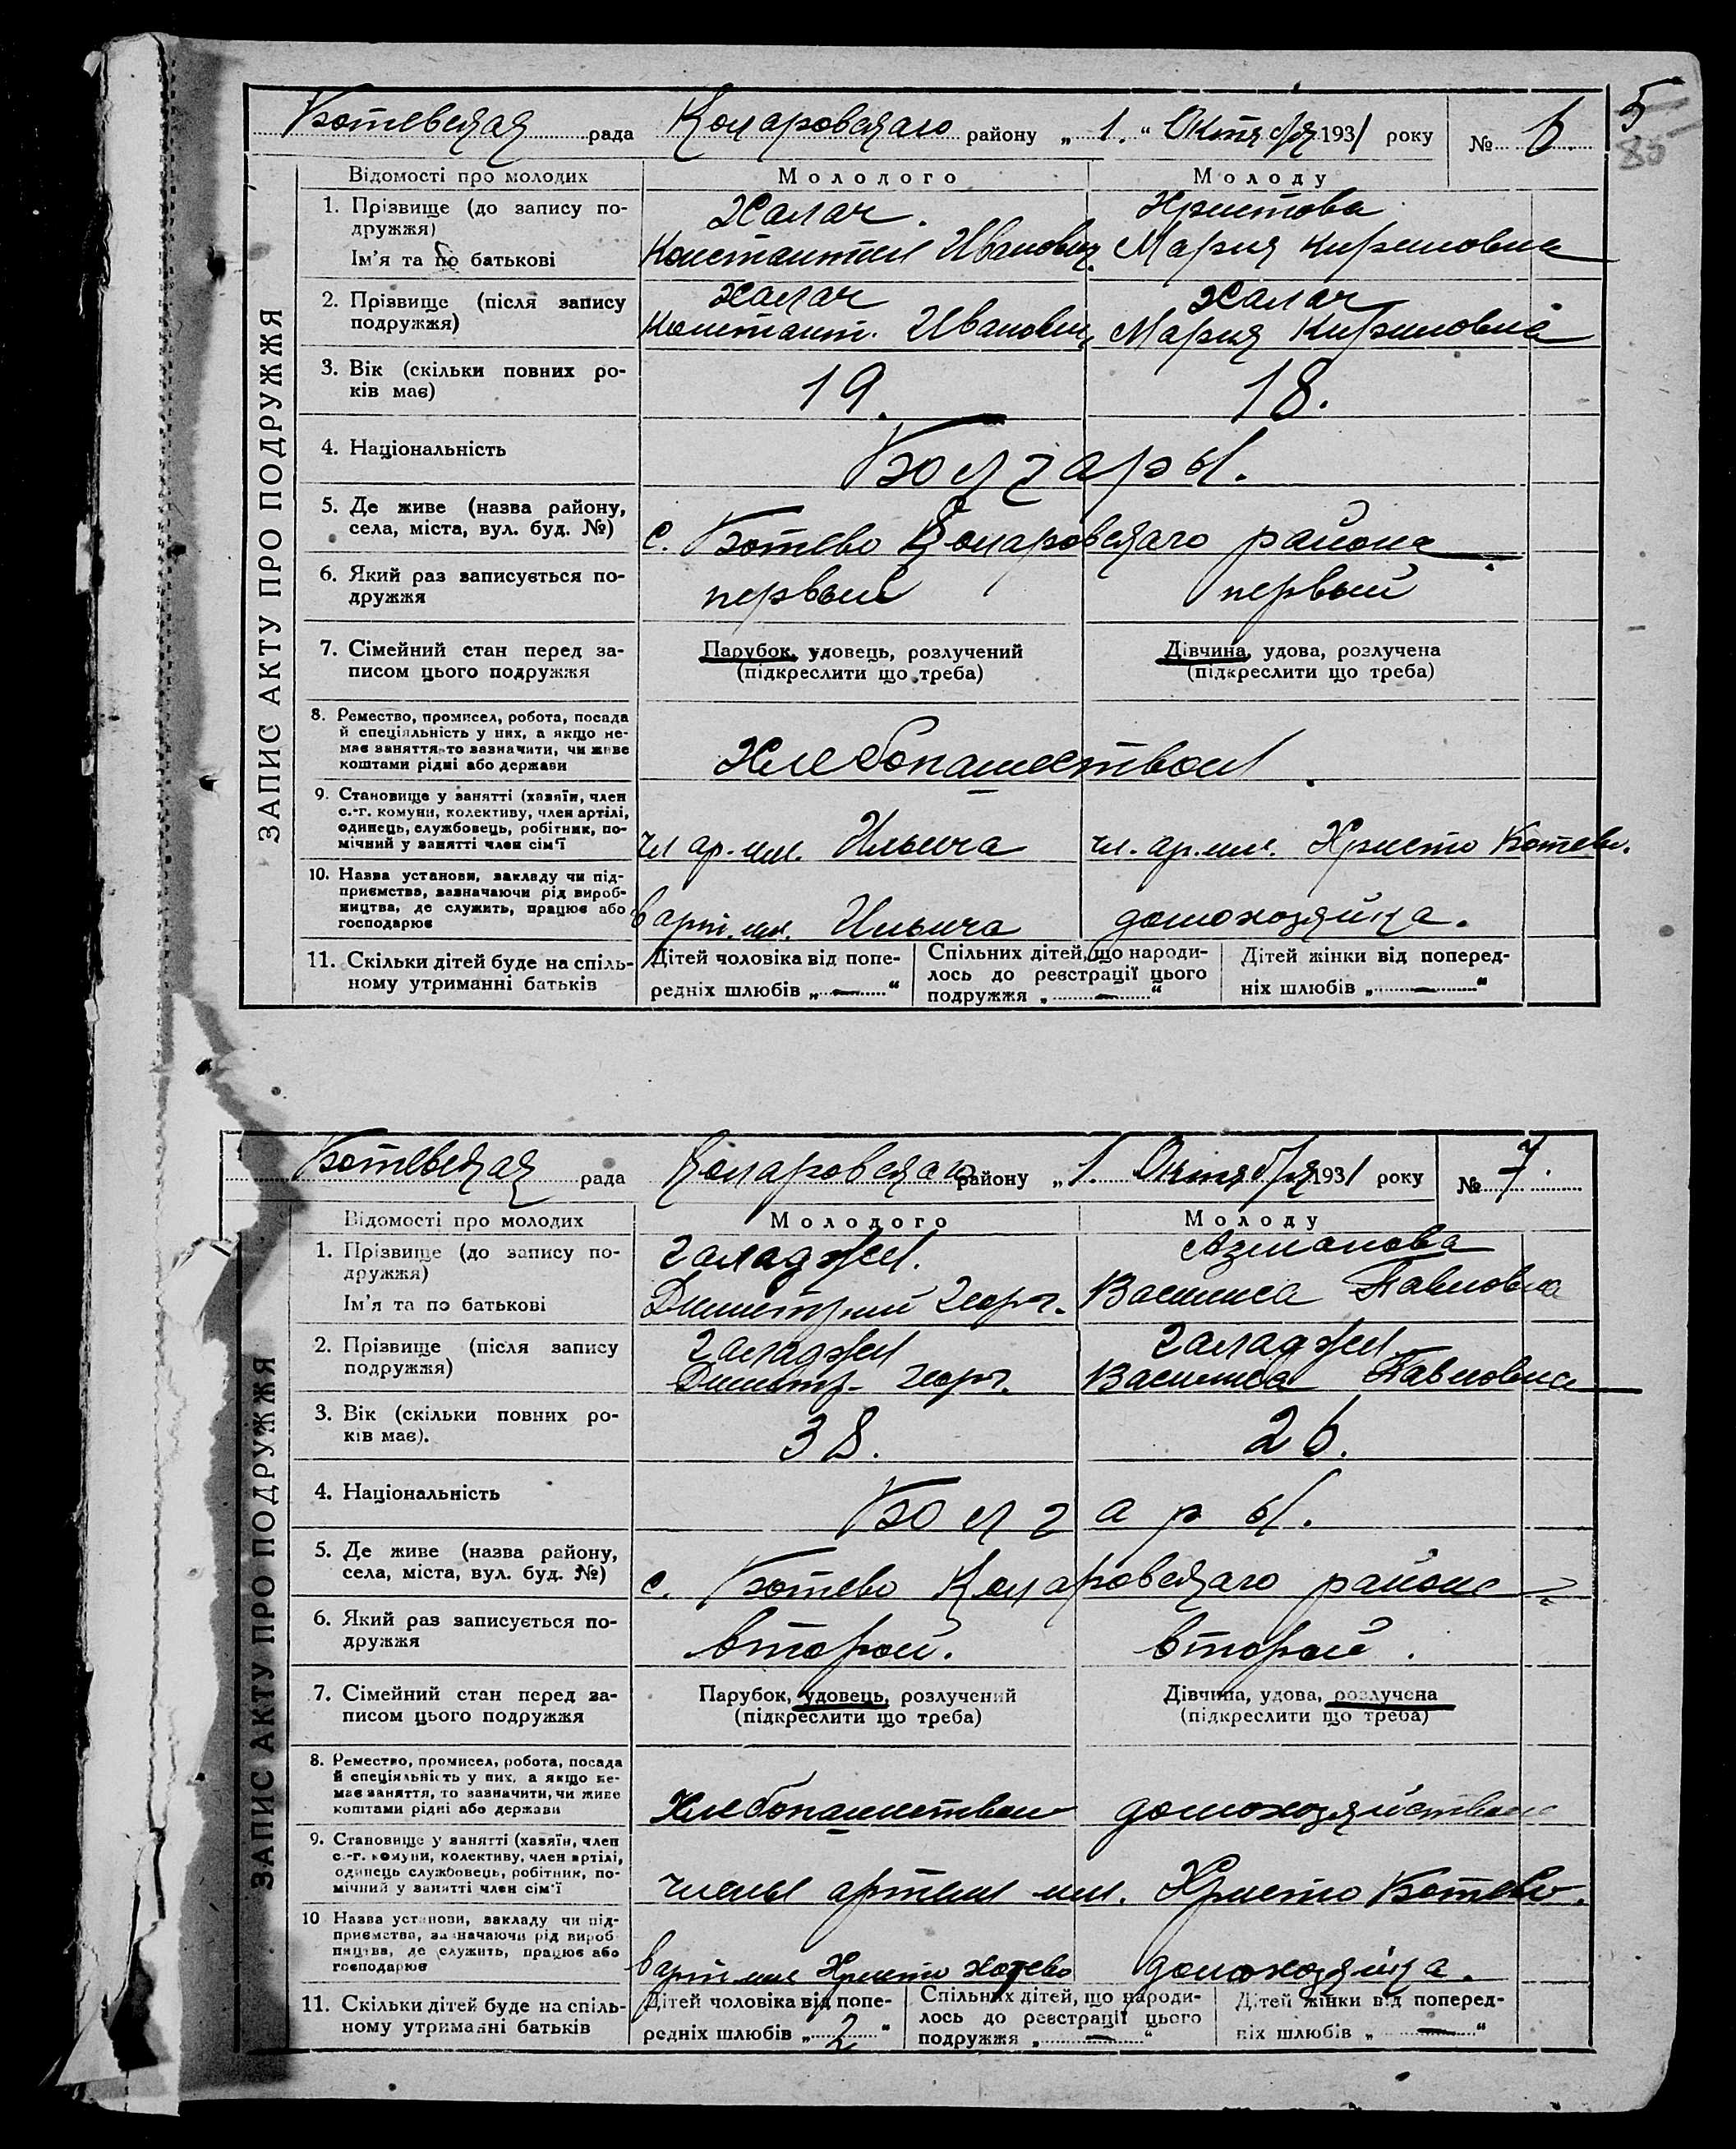 5
80
Ботевская рада Коларовскаго району „ 1. “ Октября 1931 року № 6.
ЗАПИС АКТУ ПРО ПОДРУЖЖЯ
Відомості про молодих Молодого Молоду
1. Прізвище (до запису по-
дружжя)
Халач. Христова
Ім'я та по батькові Константин Иванович. Мария Кириловна
2. Прізвище (після запису
подружжя)
Халач Халач
Констант. Иванович Мария Кириловна
3. Вік (скільки повних ро-
ків має)
19. 18.
4. Національність Болгары.
5. Де живе (назва району,
села, міста, вул. буд. №)
с. Ботево Коларовскаго района
6. Який раз записується по-
дружжя
первый первый
7. Сімейний стан перед за-
писом цього подружжя
Парубок, удовець, розлучений
(підкреслити що треба)
Дівчина, удова, розлучена
(підкреслити що треба)
8. Ремество, промисел, робота, посада
й спеціяльність у них, а якщо не-
має заняття, то зазначити, чи живе
коштами рідні або держави
Хлебопашеством
9. Становище у занятті (хазяїн, член
с.-г. комуни, колективу, член артілі,
одинець, службовець, робітник, по-
мічний у занятті член сім'ї
чл ар. им. Ильича чл. ар. им. Христо Ботево.
10. Назва установи, закладу чи під-
приємства, зазначаючи рід вироб-
ництва, де служить, працює або
господарює
в арт. им. Ильича домохозяйка.
11. Скільки дітей буде на спіль-
ному утриманні батьків
Дітей чоловіка від попе-
редніх шлюбів „ — “
Спільних дітей, що народи-
лось до реєстрації цього
подружжя „ — “
Дітей жінки від поперед-
ніх шлюбів „ — “
Ботевская рада Коларовскаго району „ 1. Октября 1931 року № 7.
ЗАПИС АКТУ ПРО ПОДРУЖЖЯ
Відомості про молодих Молодого Молоду
1. Прізвище (до запису по-
дружжя)
Галаджи. Азманова
Ім'я та по батькові Димитрий Георг. Василиса Павловна
2. Прізвище (після запису
подружжя)
Галаджи Галаджи
Димитр. Георг. Василиса Павловна
3. Вік (скільки повних ро-
ків має).
38. 26.
4. Національність Болгары.
5. Де живе (назва району,
села, міста, вул. буд. №)
с. Ботево Коларовскаго района
6. Який раз записується по-
дружжя
второй. второй.
7. Сімейний стан перед за-
писом цього подружжя
Парубок, удовець, розлучений
(підкреслити що треба)
Дівчина, удова, розлучена
(підкреслити що треба)
8. Ремество, промисел, робота, посада
й спеціяльність у них, а якщо не-
має заняття, то зазначити, чи живе
коштами рідні або держави
Хлебопашеством домохозяйством
9. Становище у занятті (хазяїн, член
с.-г. комуни, колективу, член артілі,
одинець службовець, робітник, по-
мічний у занятті член сім'ї
члены артели им. Христо Ботево.
10 Назва установи, закладу чи під-
приємства, зазначаючи рід вироб-
ництва, де служить, працює або
господарює
в арт. им Христо Ботево домохозяйка.
11. Скільки дітей буде на спіль-
ному утриманні батьків
Дітей чоловіка від попе-
редніх шлюбів „ 2 “
Спільних дітей, що народи-
лось до реєстрації цього
подружжя „ — “
Дітей жінки від поперед-
ніх шлюбів „ — “